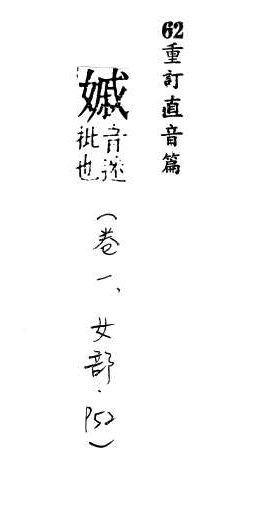 62重訂直音篇
音
也
(卷一、女部.P52)